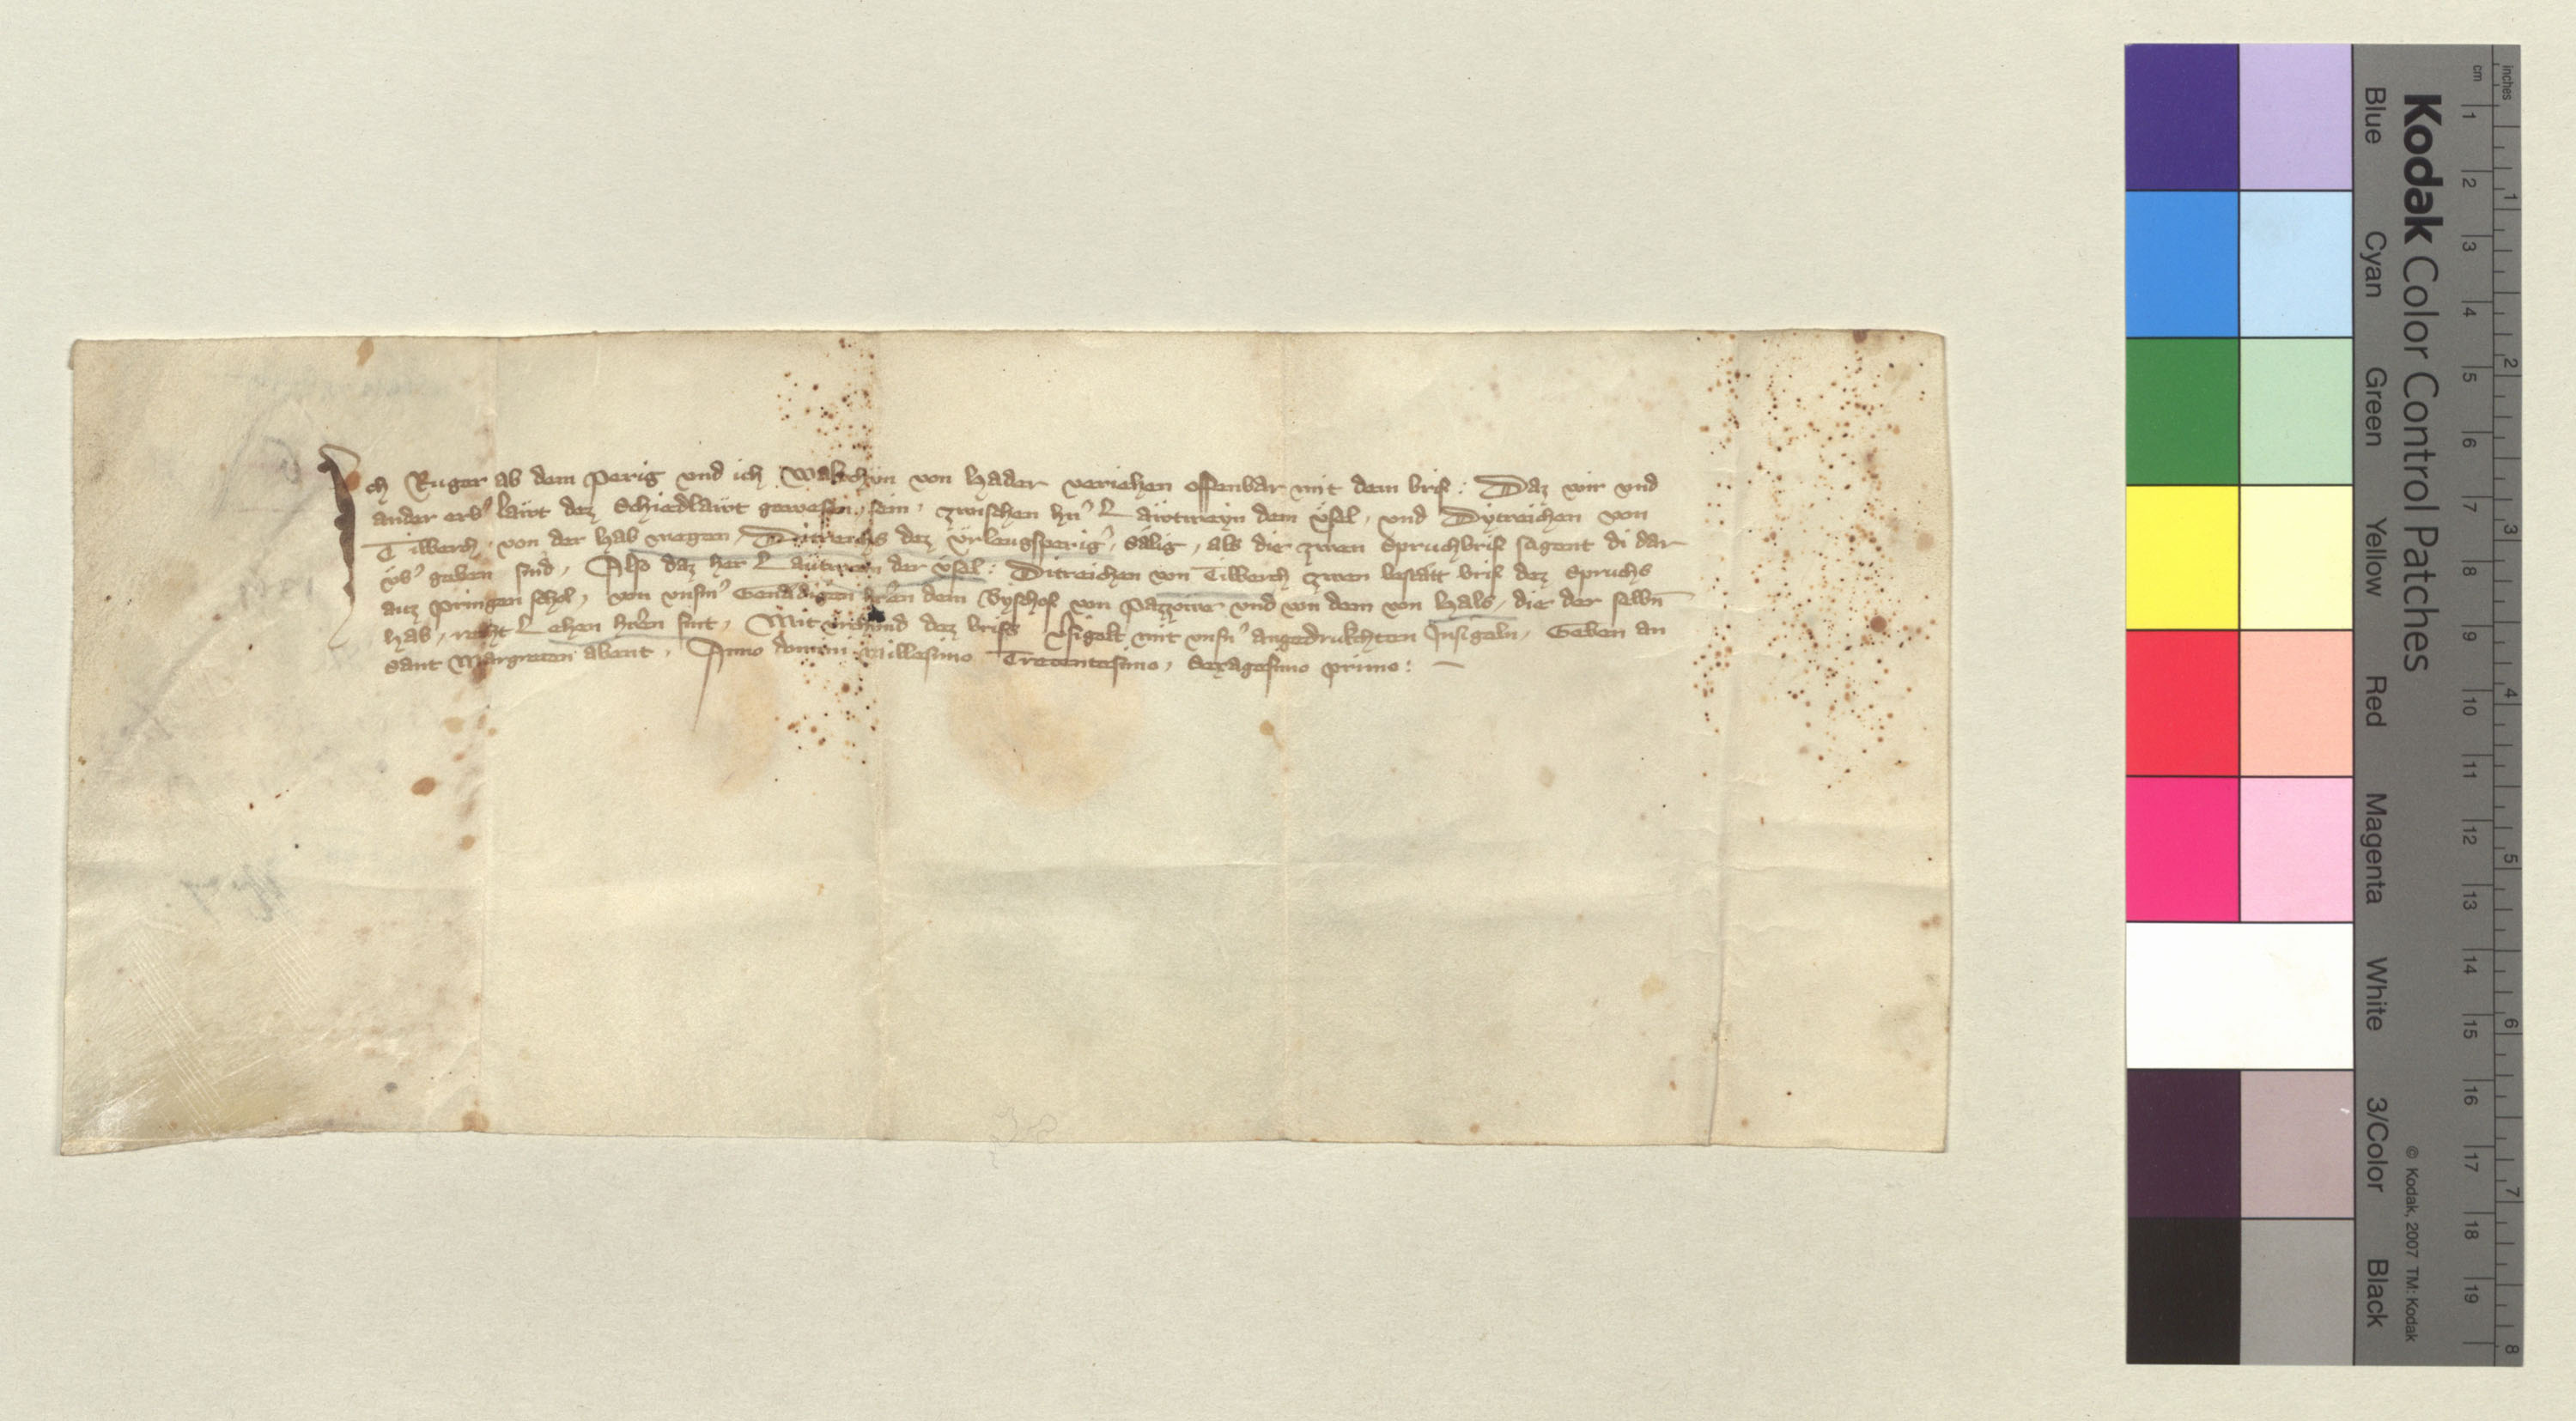 Ich Ruger ab dem Perig und ich Walchun von Hader veriehen offenbar mit dem brif: Daz wir und
ander erb' läwt dez Schiedläwt gewesen sein, zwischen hn' Läwtweyn dem Üsel, und Dytreichen von
Tilberch, von der hab wegen, Ditreichs dez Ürleugsperig', sälig, als die zwen Spruchbrif sagent di dar
üb' geben sind, Also daz her Läutwein der Üsel: Ditreichen von Tilberch zwen bestätt brif dez Spruchs
auz pringen schol, von unsm' Genädigen hr'en dem Byschof von Pazzowe und von dem von Hals, die der selbn
hab, recht Lehen hr'en sint, Mit urchund dez brifs v'sigelt mit unsn' angedrukchten Insigeln, Geben an
sant Margreten abent, Anno domini millesimo Trecentesimo, Sexagesimo primo:
Kodak Color Control Patches
Blue Cyan Green Yellow Red Magenta White 3/Color Black
© Kodak, 2007 TM: Kodak
cm 1 2 3 4 5 6 7 8 9 10 11 12 13 14 15 16 17 18 19
inches 1 2 3 4 5 6 7 8